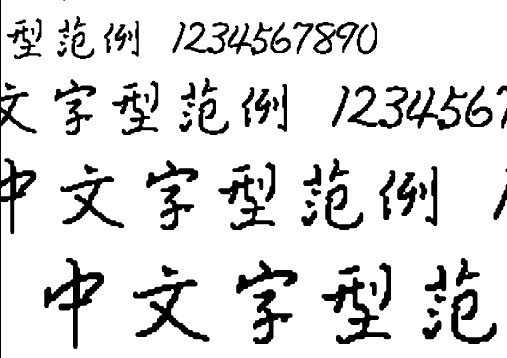 型范例 1234567890
文字型范例 1234567
中文字型范例 1
中文字型范